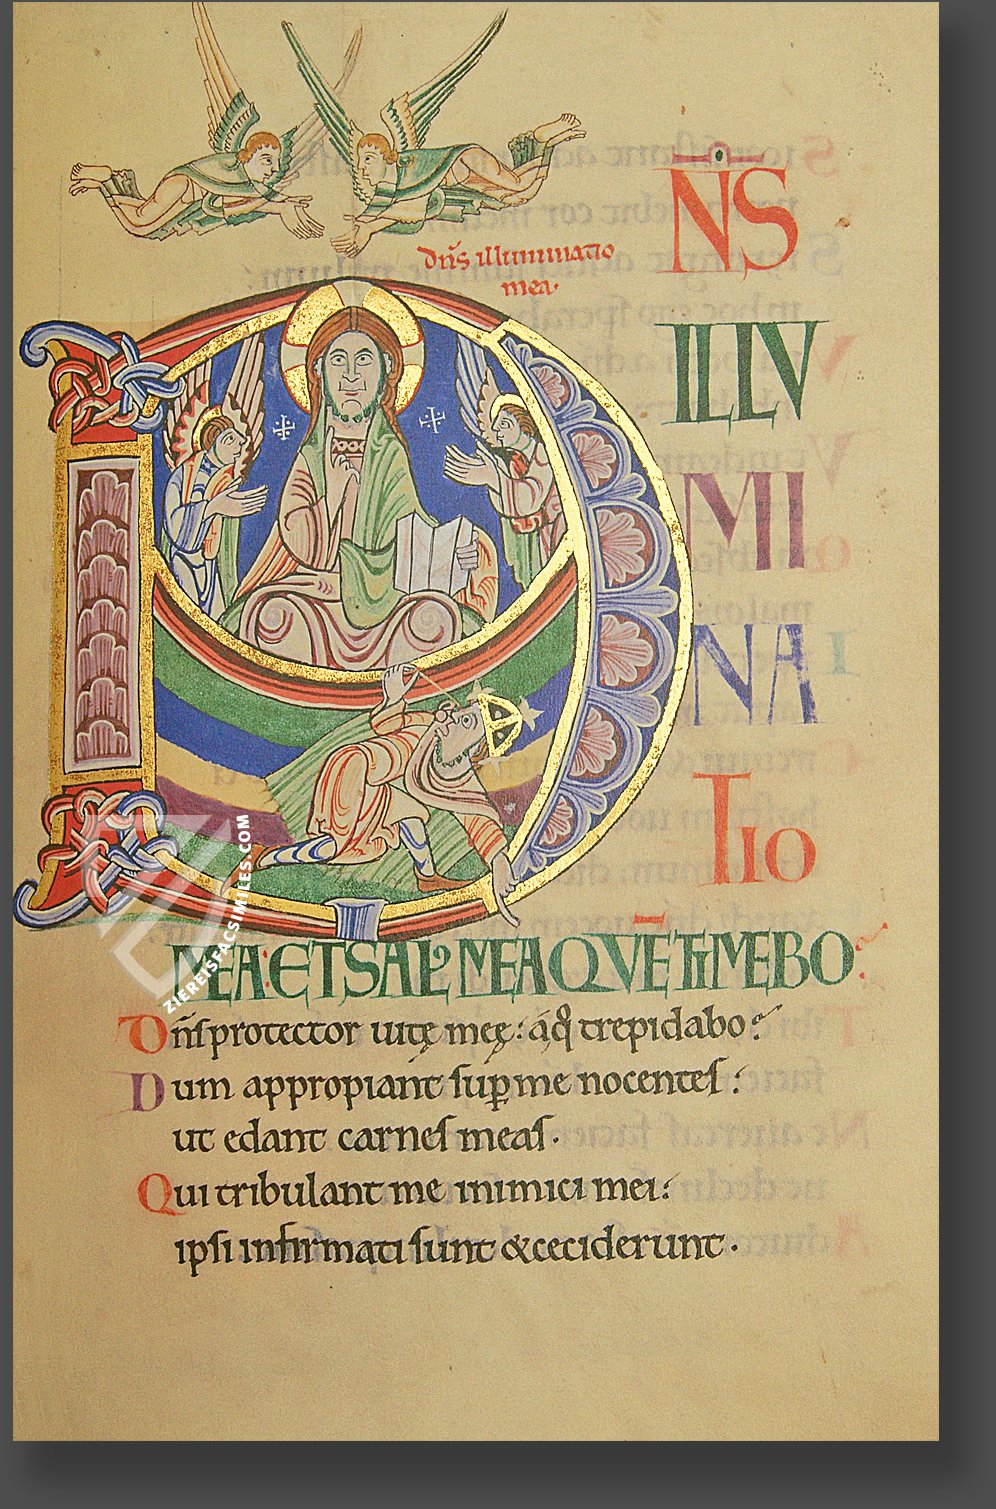 dn̄s illuminatio
mea·
N̄S
ILLV
MI
NA
TIO
MEA·ET SAL MEA QVE TIMEBO
Dn̄s protector uitę meę: a q̊ trepidabo?
Dum appropiant sup me nocentes:
ut edant carnes meas·
Qui tribulant me inimici mei:
ipsi infirmati sunt & ceciderunt·
ZIEREISFACSIMILES.COM